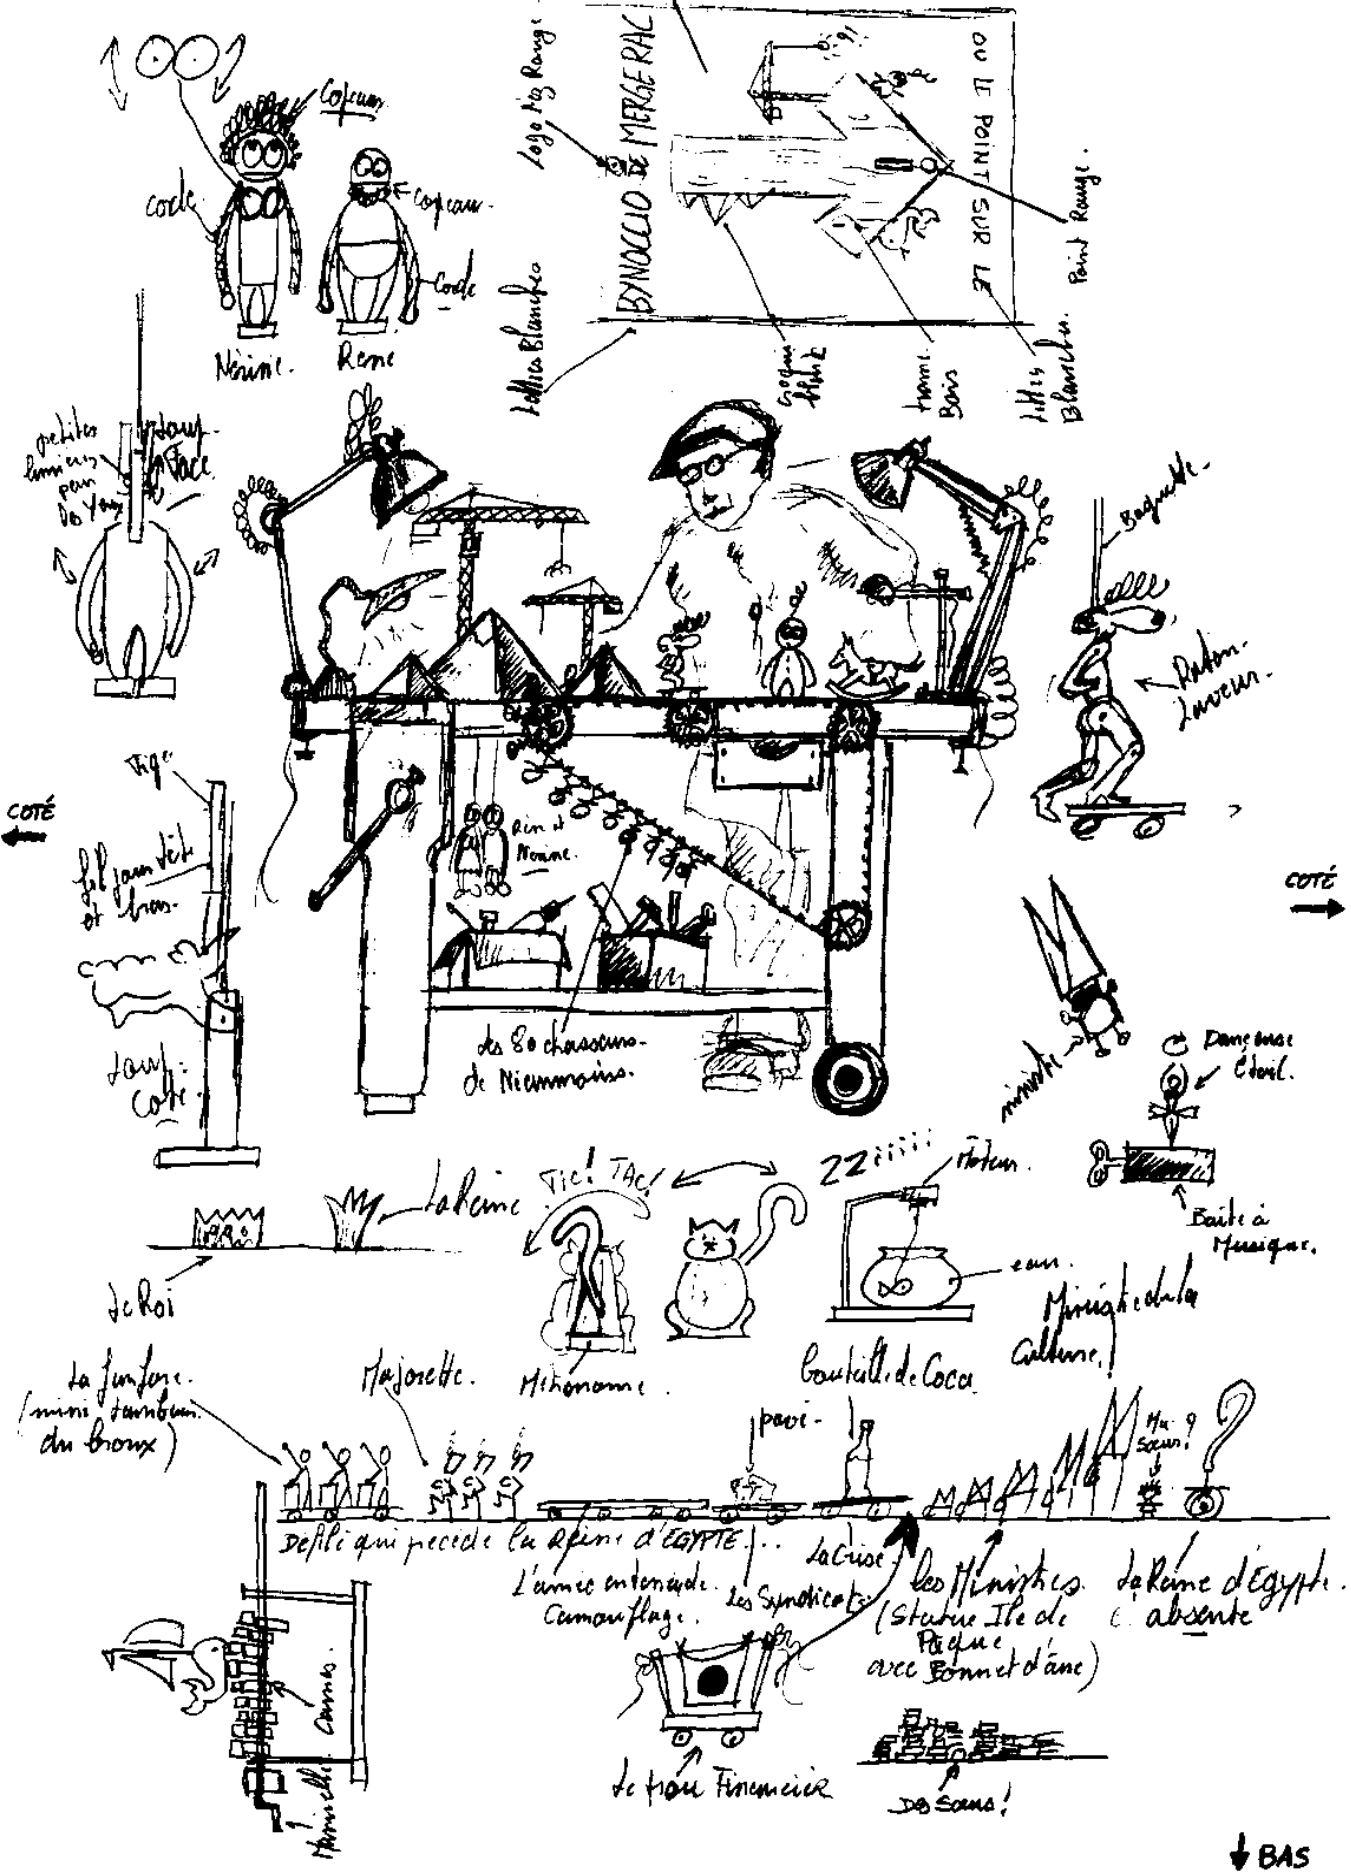 Copeaux
Corde
Copeaux
Corde
Nérine.
René
Logo Pig Rouge
BYNOCCIO DE MERGERAC
OU LE POINT SUR LE
Point Rouge.
Lettres Blanches
croquis
blanc
trame
Bois
Lettres
Blanches.
petites
lumières
pour
les Yeux
Loup
Face
Baguette
Raton-
Laveur.
Tige
COTÉ
fil pour tête
et bras.
René et
Nérine.
COTÉ
Les 80 chasseurs
de Nicunmoins.
Loup.
Coté.
ministre
Danseuse
Etoile.
Boite à
Musique.
La Reine
TIC! TAC!
ZZiiiiii
Moteur.
eau.
Le Roi
Ministre de la
Culture!
La fanfare.
(mini tambour
du bronx)
Majorette.
Métronome.
bouteille de Coca
pavé.
Ma
soeur?
Défilé qui précède la Reine d'EGYPTE...
L'armée en tenue de
Camouflage.
Les Syndicats
La Crise
Les Ministres.
(Statue Ile de
Pâque
avec Bonnet d'âne)
La Reine d'Egypte.
absente
Cames.
Manivelle
Le trou Financier
Des Sous!
BAS